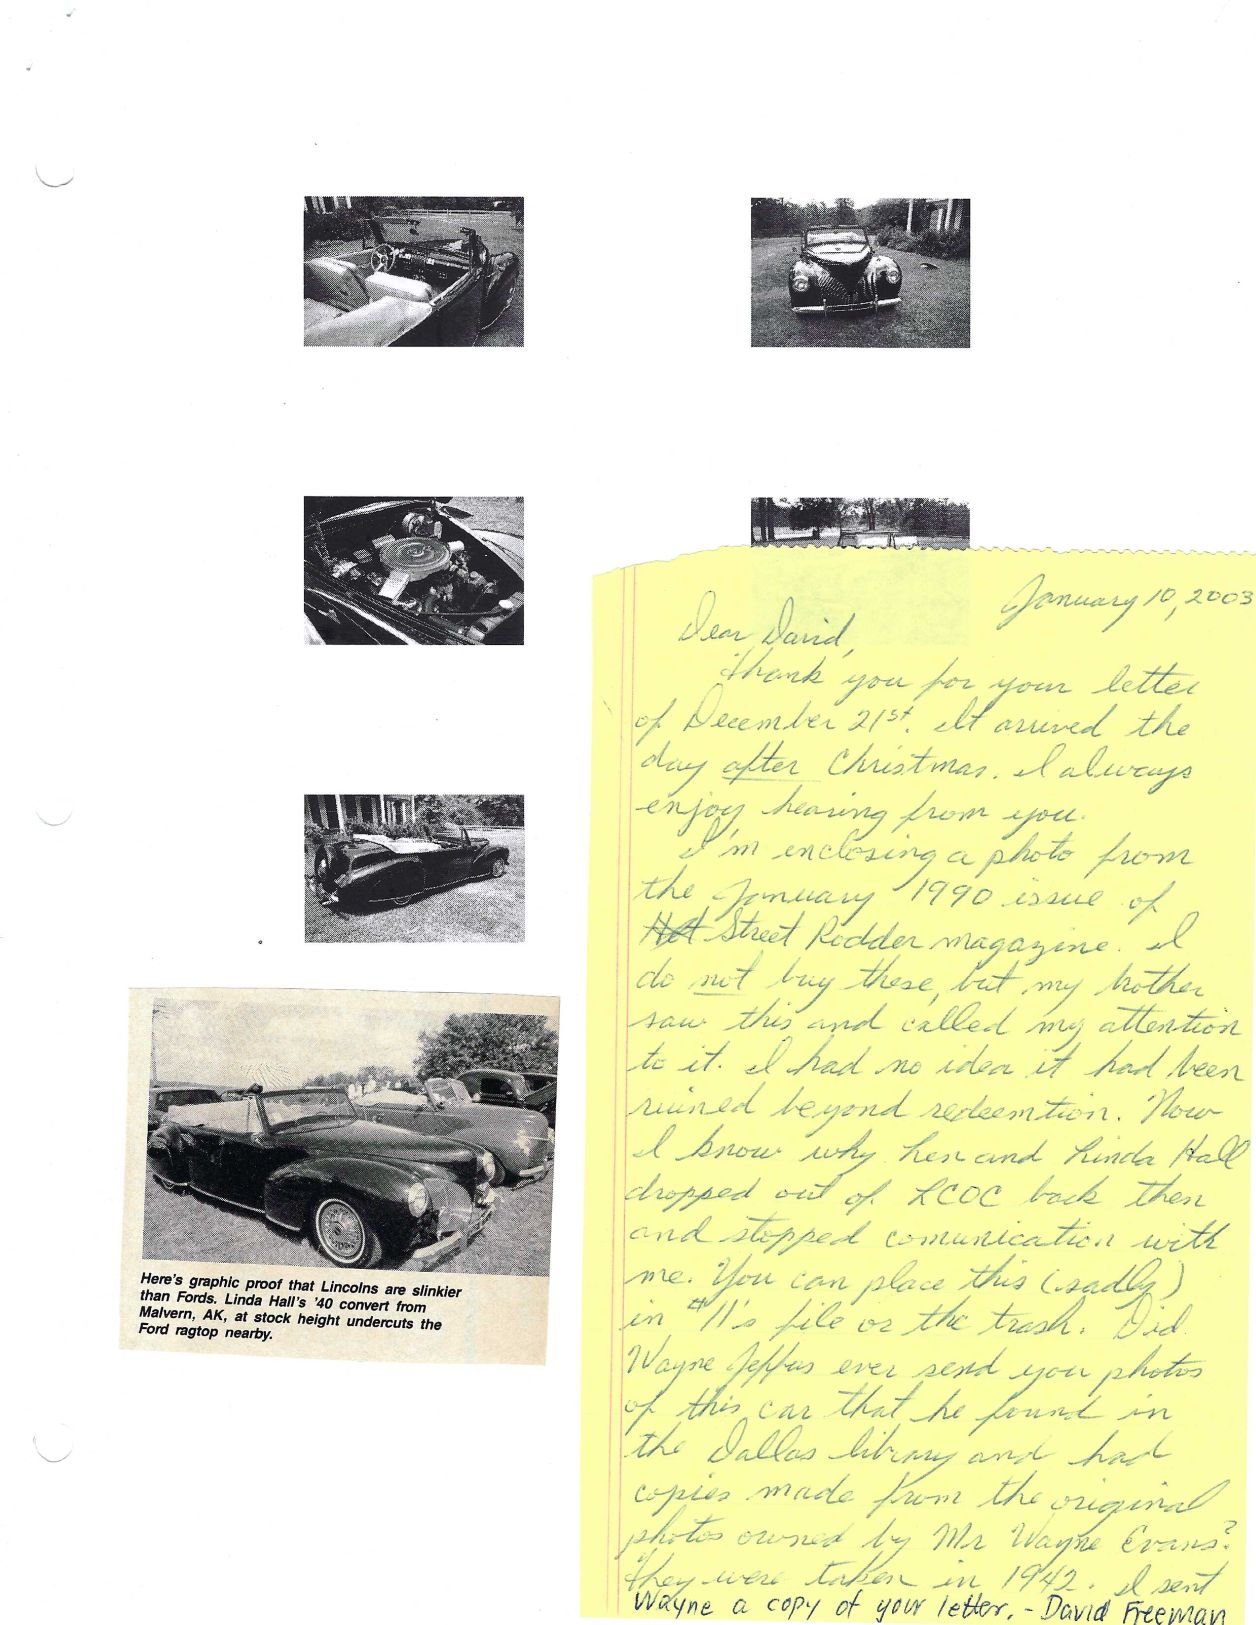 January 10, 2003
Dear David,
Thank you for your letter
of December 21st. It arrived the
day after Christmas. I always
enjoy hearing from you.
I'm enclosing a photo from
the January 1990 issue of
Hot Street Rodder magazine. I
do not buy these, but my brother
saw this and called my attention
to it. I had no idea it had been
ruined beyond redeemtion. Now
I know why Len and Linda Hall
dropped out of LCOC back then
and stopped comunication with
me. You can place this (sadly)
in #11's file or the trash. Did
Wayne ever send you photos
of this car that he found in
the Dallas library and had
copies made from the original
photos owned by Mr Wayne Evans?
They were taken in 1942. I sent
Wayne a copy of your letter. - David Freeman
Here's graphic proof that Lincolns are slinkier
than Fords. Linda Hall's '40 convert from
Malvern, AK, at stock height undercuts the
Ford ragtop nearby.